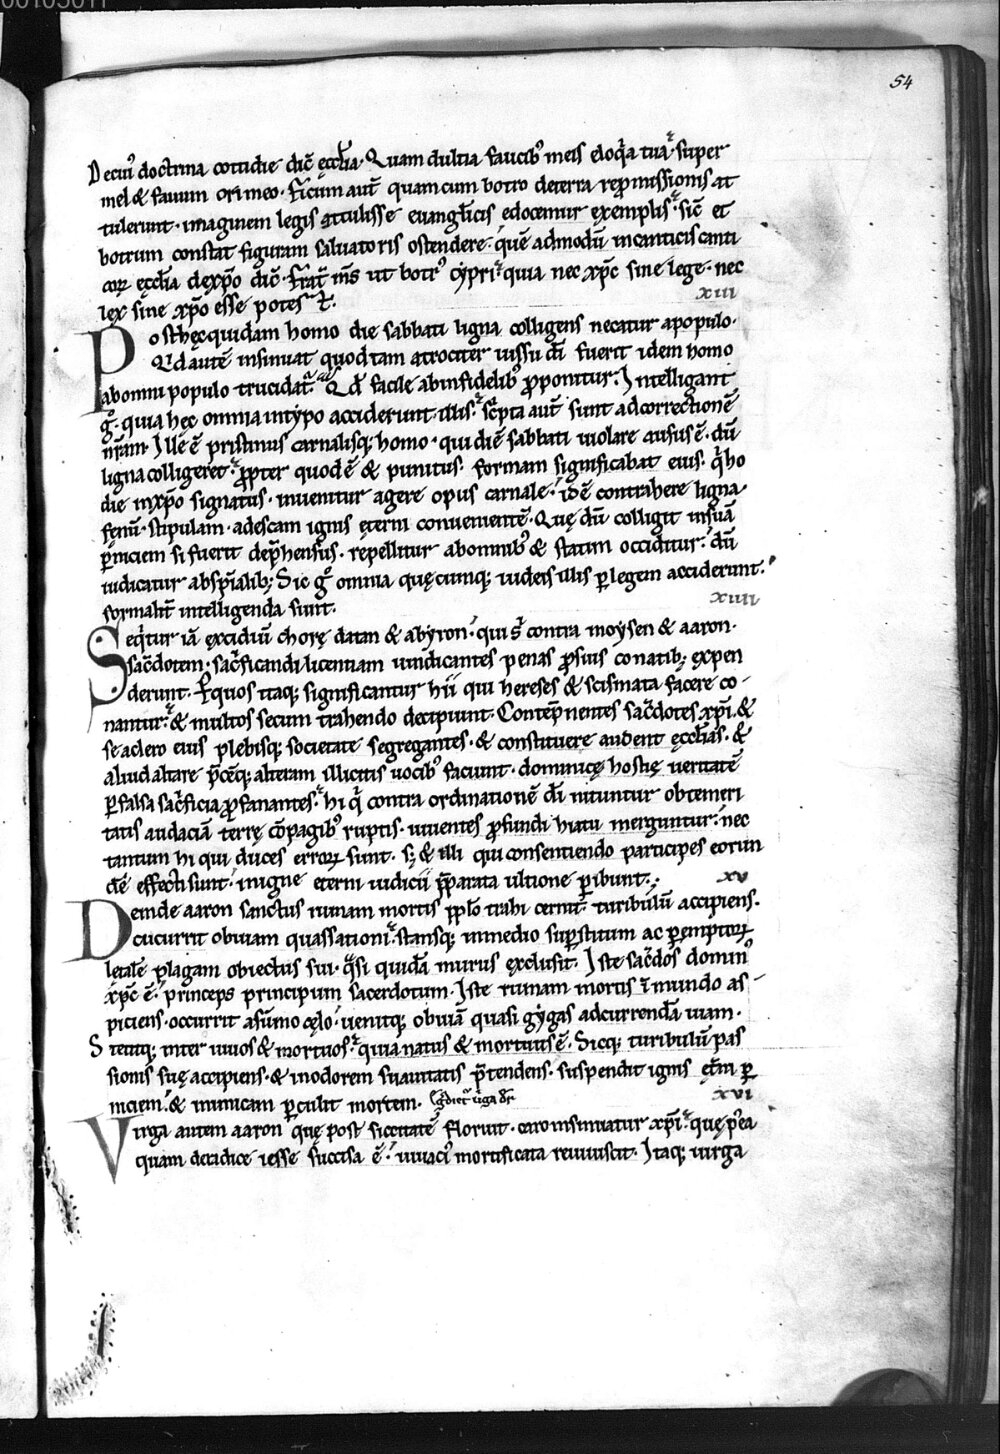 54
De cuiꝰ doctrina cottidie dic̄ ęcc̄lia. Quam dulcia faucibꝰ meis eloq̄a tua. super
mel & fauum ori meo. Ficum aut̄ quam cum botro de terra repromissionis at
tulerunt. imaginem legis attulisse euangl̄icis edocemur exemplis. sic̄ et
botrum constat figuram saluatoris ostendere. quē admodū in canticis canti
coꝝ ęcc̄lia de xp̄o dic̄. Frat̄ ms̄ ut botrꝰ cypri. quia nec xp̄c sine lege. nec
lex sine xp̄o esse potest.
xiii
Post hęc quidam homo die sabbati ligna colligens necatur a populo.
Qd̄ autē insinuat quod tam atrociter iussu dī fuerit idem homo
ab omni populo trucidat. Qd̄ facile ab infidelibꝰ proponitur. Intelligant
g̊ quia hęc omnia in typo acciderunt illis. sc̄pta aut̄ sunt ad correctionē
nr̄am. Ille ē pristinus carnalisq; homo. qui diē sabbati uiolare ausus ē. dū
ligna colligeret. ꝓpter quod ē & punitus. formam significabat eius. q̄ ho
die in xp̄o signatus. inuenitur agere opus carnale. id ē contrahere ligna.
fenū. stipulam. ad escam ignis ęterni conuenientē. Quę dū colligit in suā
ꝑniciem si fuerit dep̄hensus. repellitur ab omnibꝰ & statim occiditur. dū
iudicatur ab sp̄ialib; Sic g̊ omnia quęcumq; iudeis illis ꝑ legem acciderunt.
formalit̄ intelligenda sunt.
xiiii
Seq̄tur iā excidiū chorę datan & abyron. qui s̄ contra moysen & aaron.
sac̄dotem. sac̄ficandi licentiam uindicantes penas ꝓsius conatib; expen
derunt. Ꝑ quos itaq; significantur hii qui hereses & scismata facere co-
nantur. & multos secum trahendo decipiunt. Contēpnentes sac̄dotes xp̄i. &
se a clero eius plebisq; societate segregantes. & constituere audent ęcc̄lias. &
aliud altare p̄cēq; alteram illicitis uocibꝰ faciunt. dominicę hostię ueritatē
ꝑ falsa sac̄ficia ꝓfanantes. hi q̄ contra ordinationē dī nituntur ob temeri
tatis audaciā terrę cōpagibꝰ ruptis. uiuentes ꝓfundi hiatu merguntur. nec
tantum hi qui duces erroꝝ sunt. s; & illi qui consentiendo participes eorun
dē effecti sunt. in igne eterni iudicii p̄parata ultione ꝑibunt.
xv
Deinde aaron sanctus ruinam mortis pp̄lo trahi cernit. turibulū accipiens.
cucurrit obuiam quassationi. stansq; in medio suꝑstitum ac ꝑemptoꝝ
letalē plagam obiectus sui. q̄si quidā murus exclusit. Iste sac̄dos dominꝰ
xp̄c ē. princeps principum sacerdotum. Iste ruinam mortis ī mundo as-
piciens. occurrit a sūmo cęlo. uenitq; obuiā quasi gygas ad currendā uiam.
Stetitq; inter uiuos & mortuos. quia natus & mortuus ē. Sicq; turibulū pas
sionis suę accipiens. & in odorem suauitatis p̄tendens. suspendit ignis ęt̄ni ꝑ
niciem. & inimicam ꝑculit mortem.
xvi
Virga autem aaron quę post siccitatē floruit. caro insinuatur xp̄i. quę p̄ea
quam de radice iesse succisa ē. uiuaciꝰ mortificata reuiuiscit. Itaq; uirga